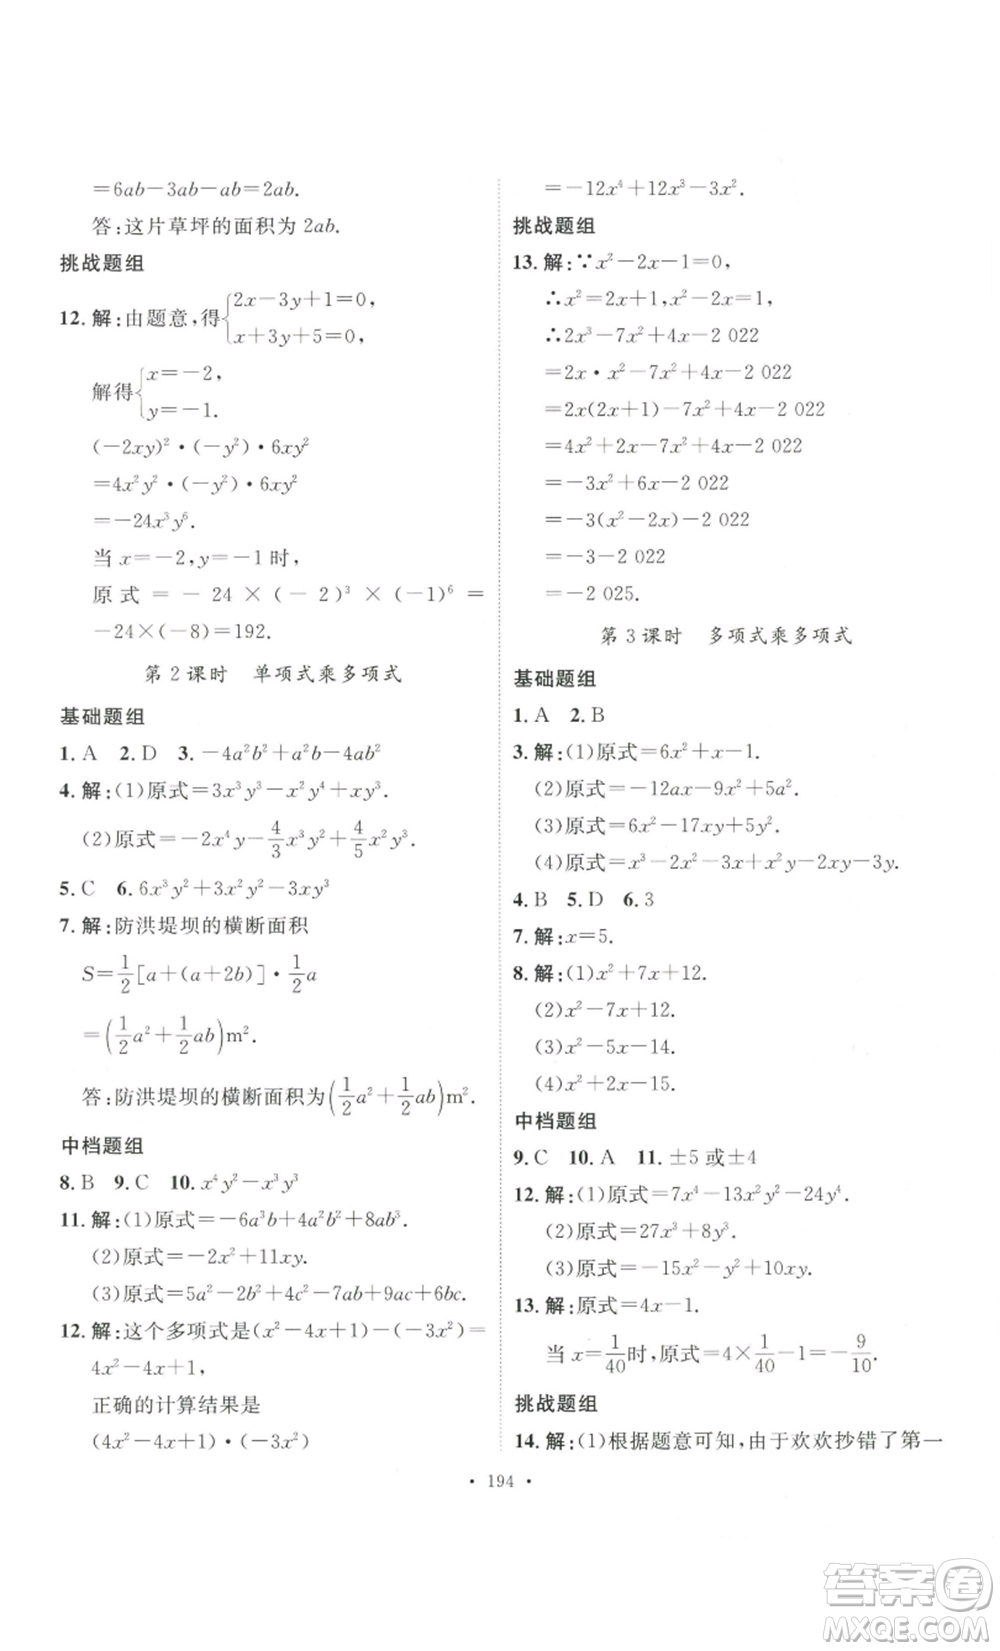 =6ab-3ab-ab=2ab.
答:这片草坪的面积为 2ab.
挑战题组
12. 解:由题意,得{2x-3y+1=0,
x+3y+5=0,
解得{x=-2,
y=-1.
(-2xy)²·(-y²)·6xy²
=4x²y²·(-y²)·6xy²
=-24x³y⁶.
当 x=-2,y=-1 时,
原式=-24×(-2)³×(-1)⁶=
-24×(-8)=192.
第 2 课时 单项式乘多项式
基础题组
1. A 2. D 3. -4a²b²+a²b-4ab²
4. 解:(1)原式=3x³y³-x²y⁴+xy³.
(2)原式=-2x⁴y-4/3x³y²+4/5x²y³.
5. C 6. 6x³y²+3x²y²-3xy³
7. 解:防洪堤坝的横断面积
S=1/2[a+(a+2b)]·1/2a
=(1/2a²+1/2ab)m².
答:防洪堤坝的横断面积为(1/2a²+1/2ab)m².
中档题组
8. B 9. C 10. x⁴y²-x³y³
11. 解:(1)原式=-6a³b+4a²b²+8ab³.
(2)原式=-2x²+11xy.
(3)原式=5a²-2b²+4c²-4ac+6bc.
12. 解:这个多项式是(x²-4x+1)-(-3x²)=
4x²-4x+1,
正确的计算结果是
(4x²-4x+1)·(-3x²)
=-12x⁴+12x³-3x².
挑战题组
13. 解:∵x²-2x-1=0,
∴x²=2x+1,x²-2x=1.
∴2x³-7x²+4x-2 022
=2x·x²-7x²+4x-2 022
=2x(2x+1)-7x²+4x-2 022
=4x²+2x-7x²+4x-2 022
=-3x²+6x-2 022
=-3(x²-2x)-2 022
=-3-2 022
=-2 025.
第 3 课时 多项式乘多项式
基础题组
1. A 2. B
3. 解:(1)原式=6x²+x-1.
(2)原式=-12ax-9x²+5a².
(3)原式=6x²-17xy+5y².
(4)原式=x³-2x²-3x+x²y-2xy-3y.
4. B 5. D 6. 3
7. 解:x=5.
8. 解:(1)x²+7x+12.
(2)x²-7x+12.
(3)x²-5x-14.
(4)x²+2x-15.
中档题组
9. C 10. A 11. ±5 或±4
12. 解:(1)原式=7x⁴-13x²y²-24y⁴.
(2)原式=27x³+8y³.
(3)原式=-15x²-y²+10xy.
13. 解:原式=4x-1.
当 x=1/40时,原式=4×1/40-1=-9/10.
挑战题组
14. 解:(1)根据题意可知,由于欢欢抄错了第一
· 194 ·
答案卷
MXQE.COM